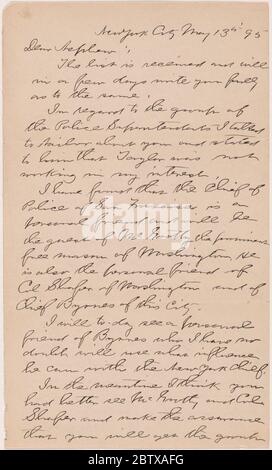 New York City May 13th 95
Dear Nephew:
The list is received and will
in a few days write you fully
as to the same.
In regard to the group of
the Police Superintendents I talked
to about you and
to him that Taylor was not
working in my interest.
I have found that the Chief of
Police of San Francisco is an
personal friend and will be
the guest of Mr. the prominent
free mason of Washington, He
is also the personal friend of
Col of Washington and of
Chief Byrnes of this City.
I will to-day see a personal
friend of Byrnes who I have no
doubt will use what influence
he can with the New York Chief.
In the meantime I think you
had better see Mr. and Col.
and make the assurance
that you will get the group
alamy
alamy
Image ID: 2BTXAFG
www.alamy.com